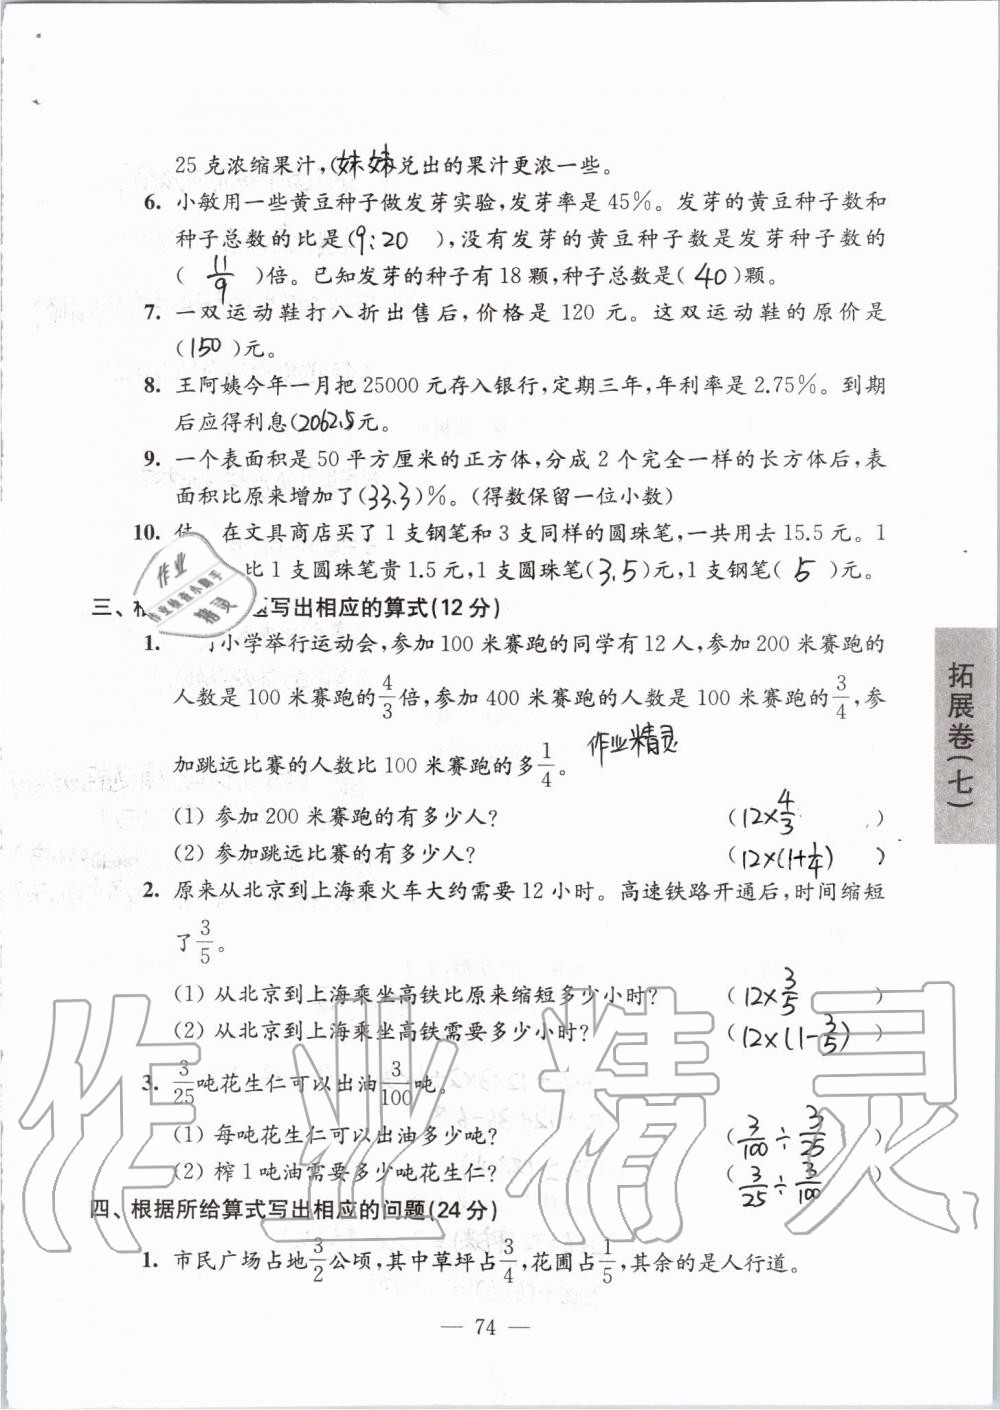 25 克浓缩果汁,(妹妹)兑出的果汁更浓一些。
6. 小敏用一些黄豆种子做发芽实验,发芽率是 45%。发芽的黄豆种子数和
种子总数的比是(9:20 ),没有发芽的黄豆种子数是发芽种子数的
( 11/9 )倍。已知发芽的种子有 18 颗,种子总数是( 40 )颗。
7. 一双运动鞋打八折出售后,价格是 120 元。这双运动鞋的原价是
(150 )元。
8. 王阿姨今年一月把 25000 元存入银行,定期三年,年利率是 2.75%。到期
后应得利息(2062.5元。
9. 一个表面积是 50 平方厘米的正方体,分成 2 个完全一样的长方体后,表
面积比原来增加了(33.3)%。(得数保留一位小数)
10. 在文具商店买了 1 支钢笔和 3 支同样的圆珠笔,一共用去 15.5 元。1
比 1 支圆珠笔贵 1.5 元,1 支圆珠笔(3.5)元,1 支钢笔( 5 )元。
作业
作业检查小助手
精灵
三、根 写出相应的算式(12 分)
1. 小学举行运动会,参加 100 米赛跑的同学有 12 人,参加 200 米赛跑的
人数是 100 米赛跑的4/3倍,参加 400 米赛跑的人数是 100 米赛跑的3/4,参
加跳远比赛的人数比 100 米赛跑的多1/4。 作业精灵
(1) 参加 200 米赛跑的有多少人? (12×4/3 )
(2) 参加跳远比赛的有多少人? (12×(1+1/4) )
2. 原来从北京到上海乘火车大约需要 12 小时。高速铁路开通后,时间缩短
了3/5。
(1) 从北京到上海乘坐高铁比原来缩短多少小时? (12×3/5 )
(2) 从北京到上海乘坐高铁需要多少小时? (12×(1-3/5) )
3. 3/25吨花生仁可以出油3/100吨。
(1) 每吨花生仁可以出油多少吨? (3/100÷3/25 )
(2) 榨 1 吨油需要多少吨花生仁? (3/25÷3/100 )
四、根据所给算式写出相应的问题(24 分)
1. 市民广场占地3/2公顷,其中草坪占3/4,花圃占1/5,其余的是人行道。
— 74 —
拓展卷(七)
作业精灵